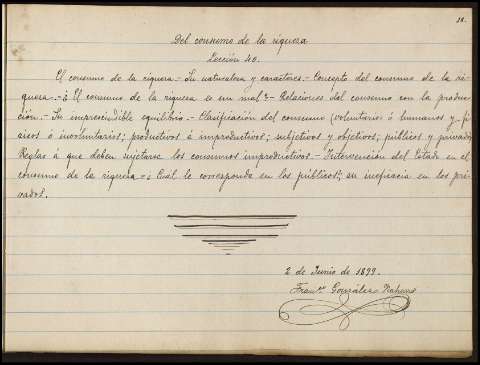 Del consumo de la riqueza
Lección 40.
El consumo de la riqueza.- Su naturaleza y caracteres.- Concepto del consumo de la ri-
queza.-¿El consumo de la riqueza es un mal?- Relaciones del consumo con la produc-
ción.- Su imprescindible equilibrio.- Clasificación del consumo (voluntarios ó humanos y fí-
sicos ó involuntarios; productivos é improductivos; subjetivos y objetivos; públicos y privados
Reglas á que deben sujetarse los consumos improductivos.- Intervención del Estado en el
consumo de la riqueza.-¿Cual le corresponde en los públicos?; su ineficacia en los pri-
vados.
2 de Junio de 1899.
Fran.co González